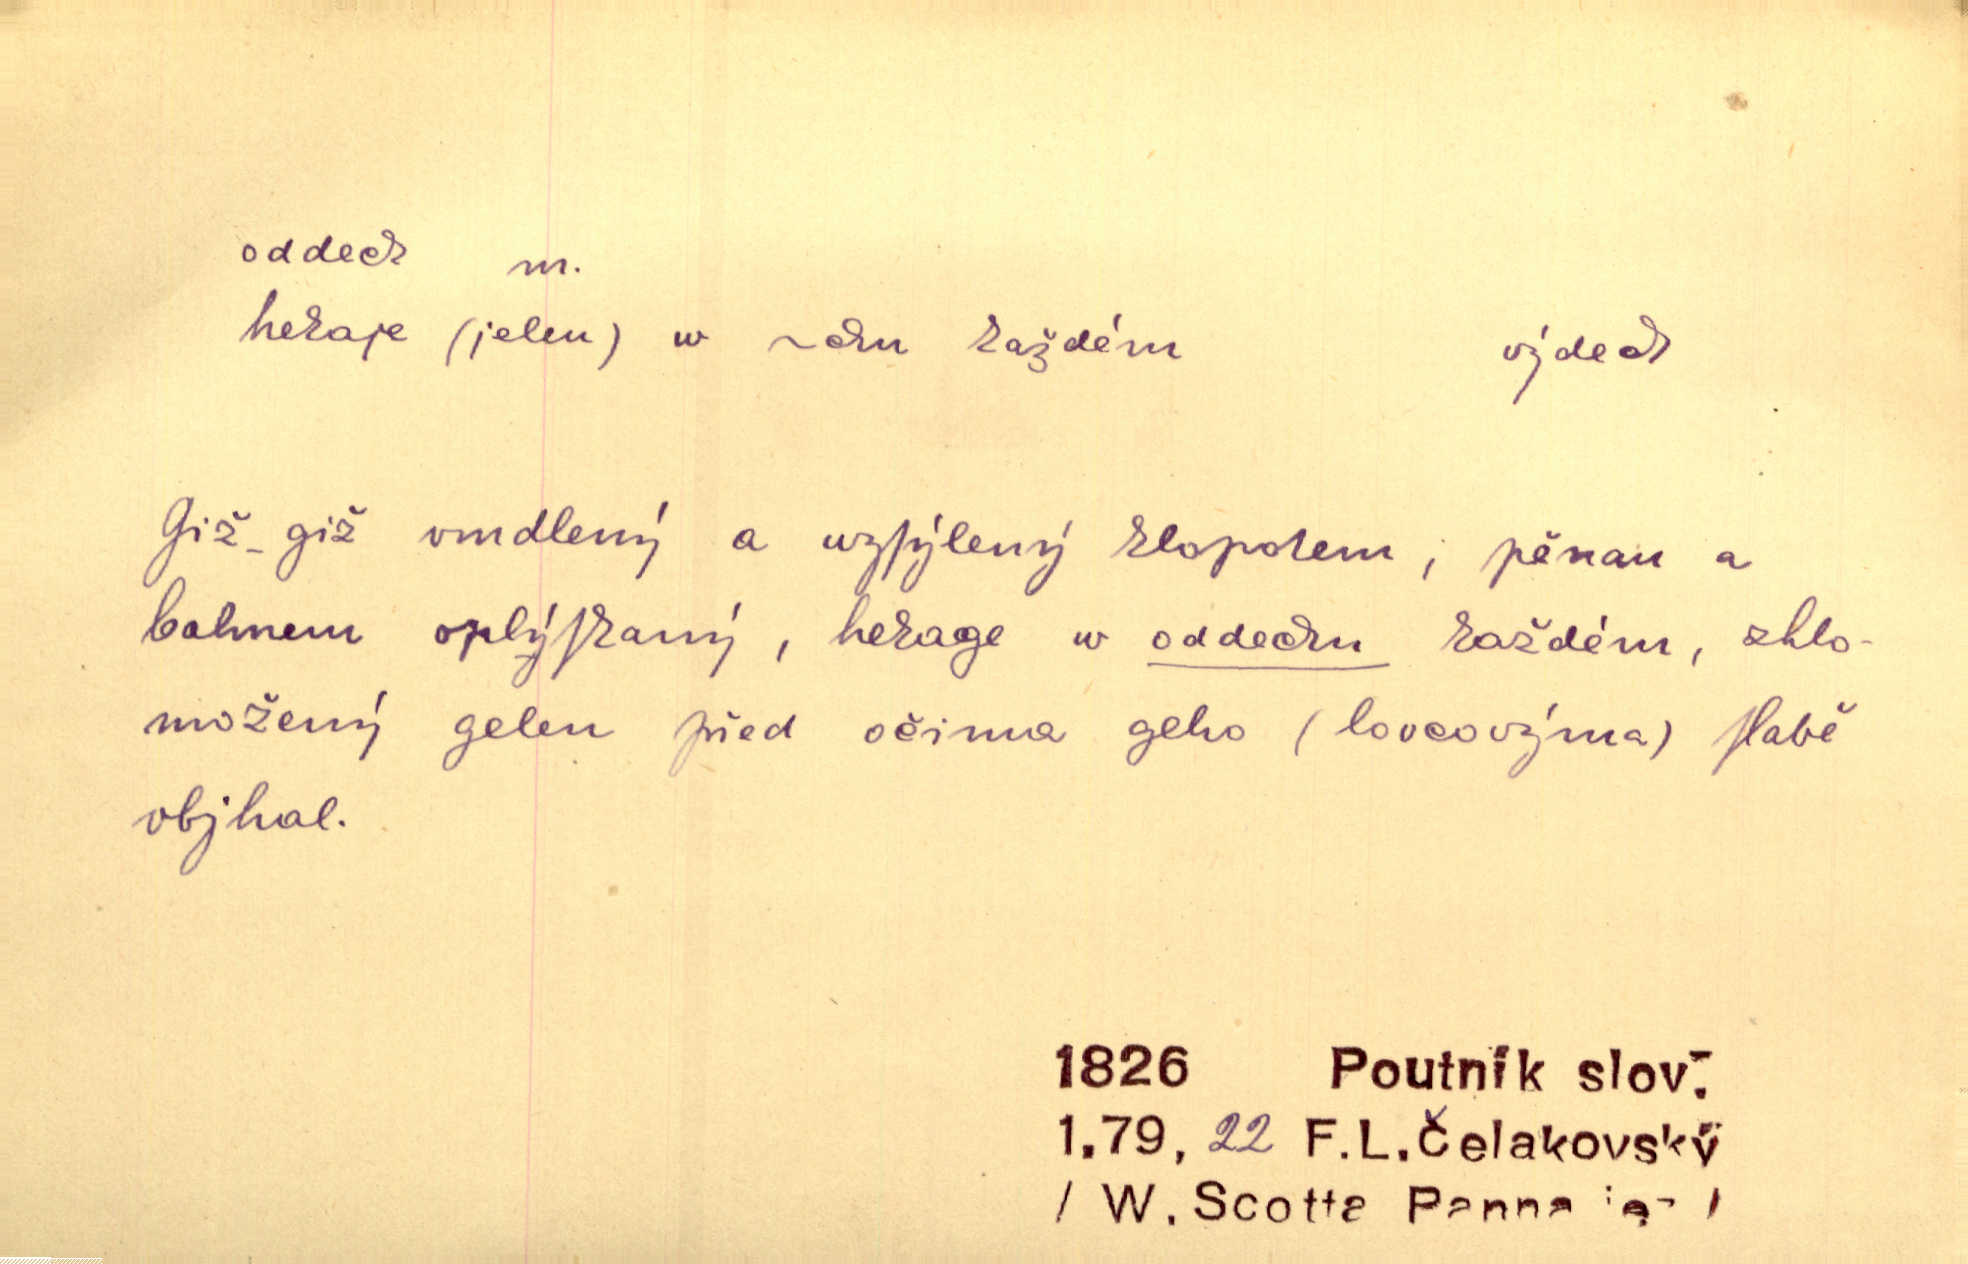 oddech m.
hekaje (jelen) w ~chu každém výdech
Giž-giž vmdlený a wzſýlený klopotem, pěnau a
bahnem oplýſkaný, hekage w oddechu každém, zhlo-
možený gelen před očima geho (lovcovýma) ſlabě
vbjhal.
1826 Poutník slov.
1.79, 22 F.L.Čelakovský
/ W. Scotta Panna jez. /